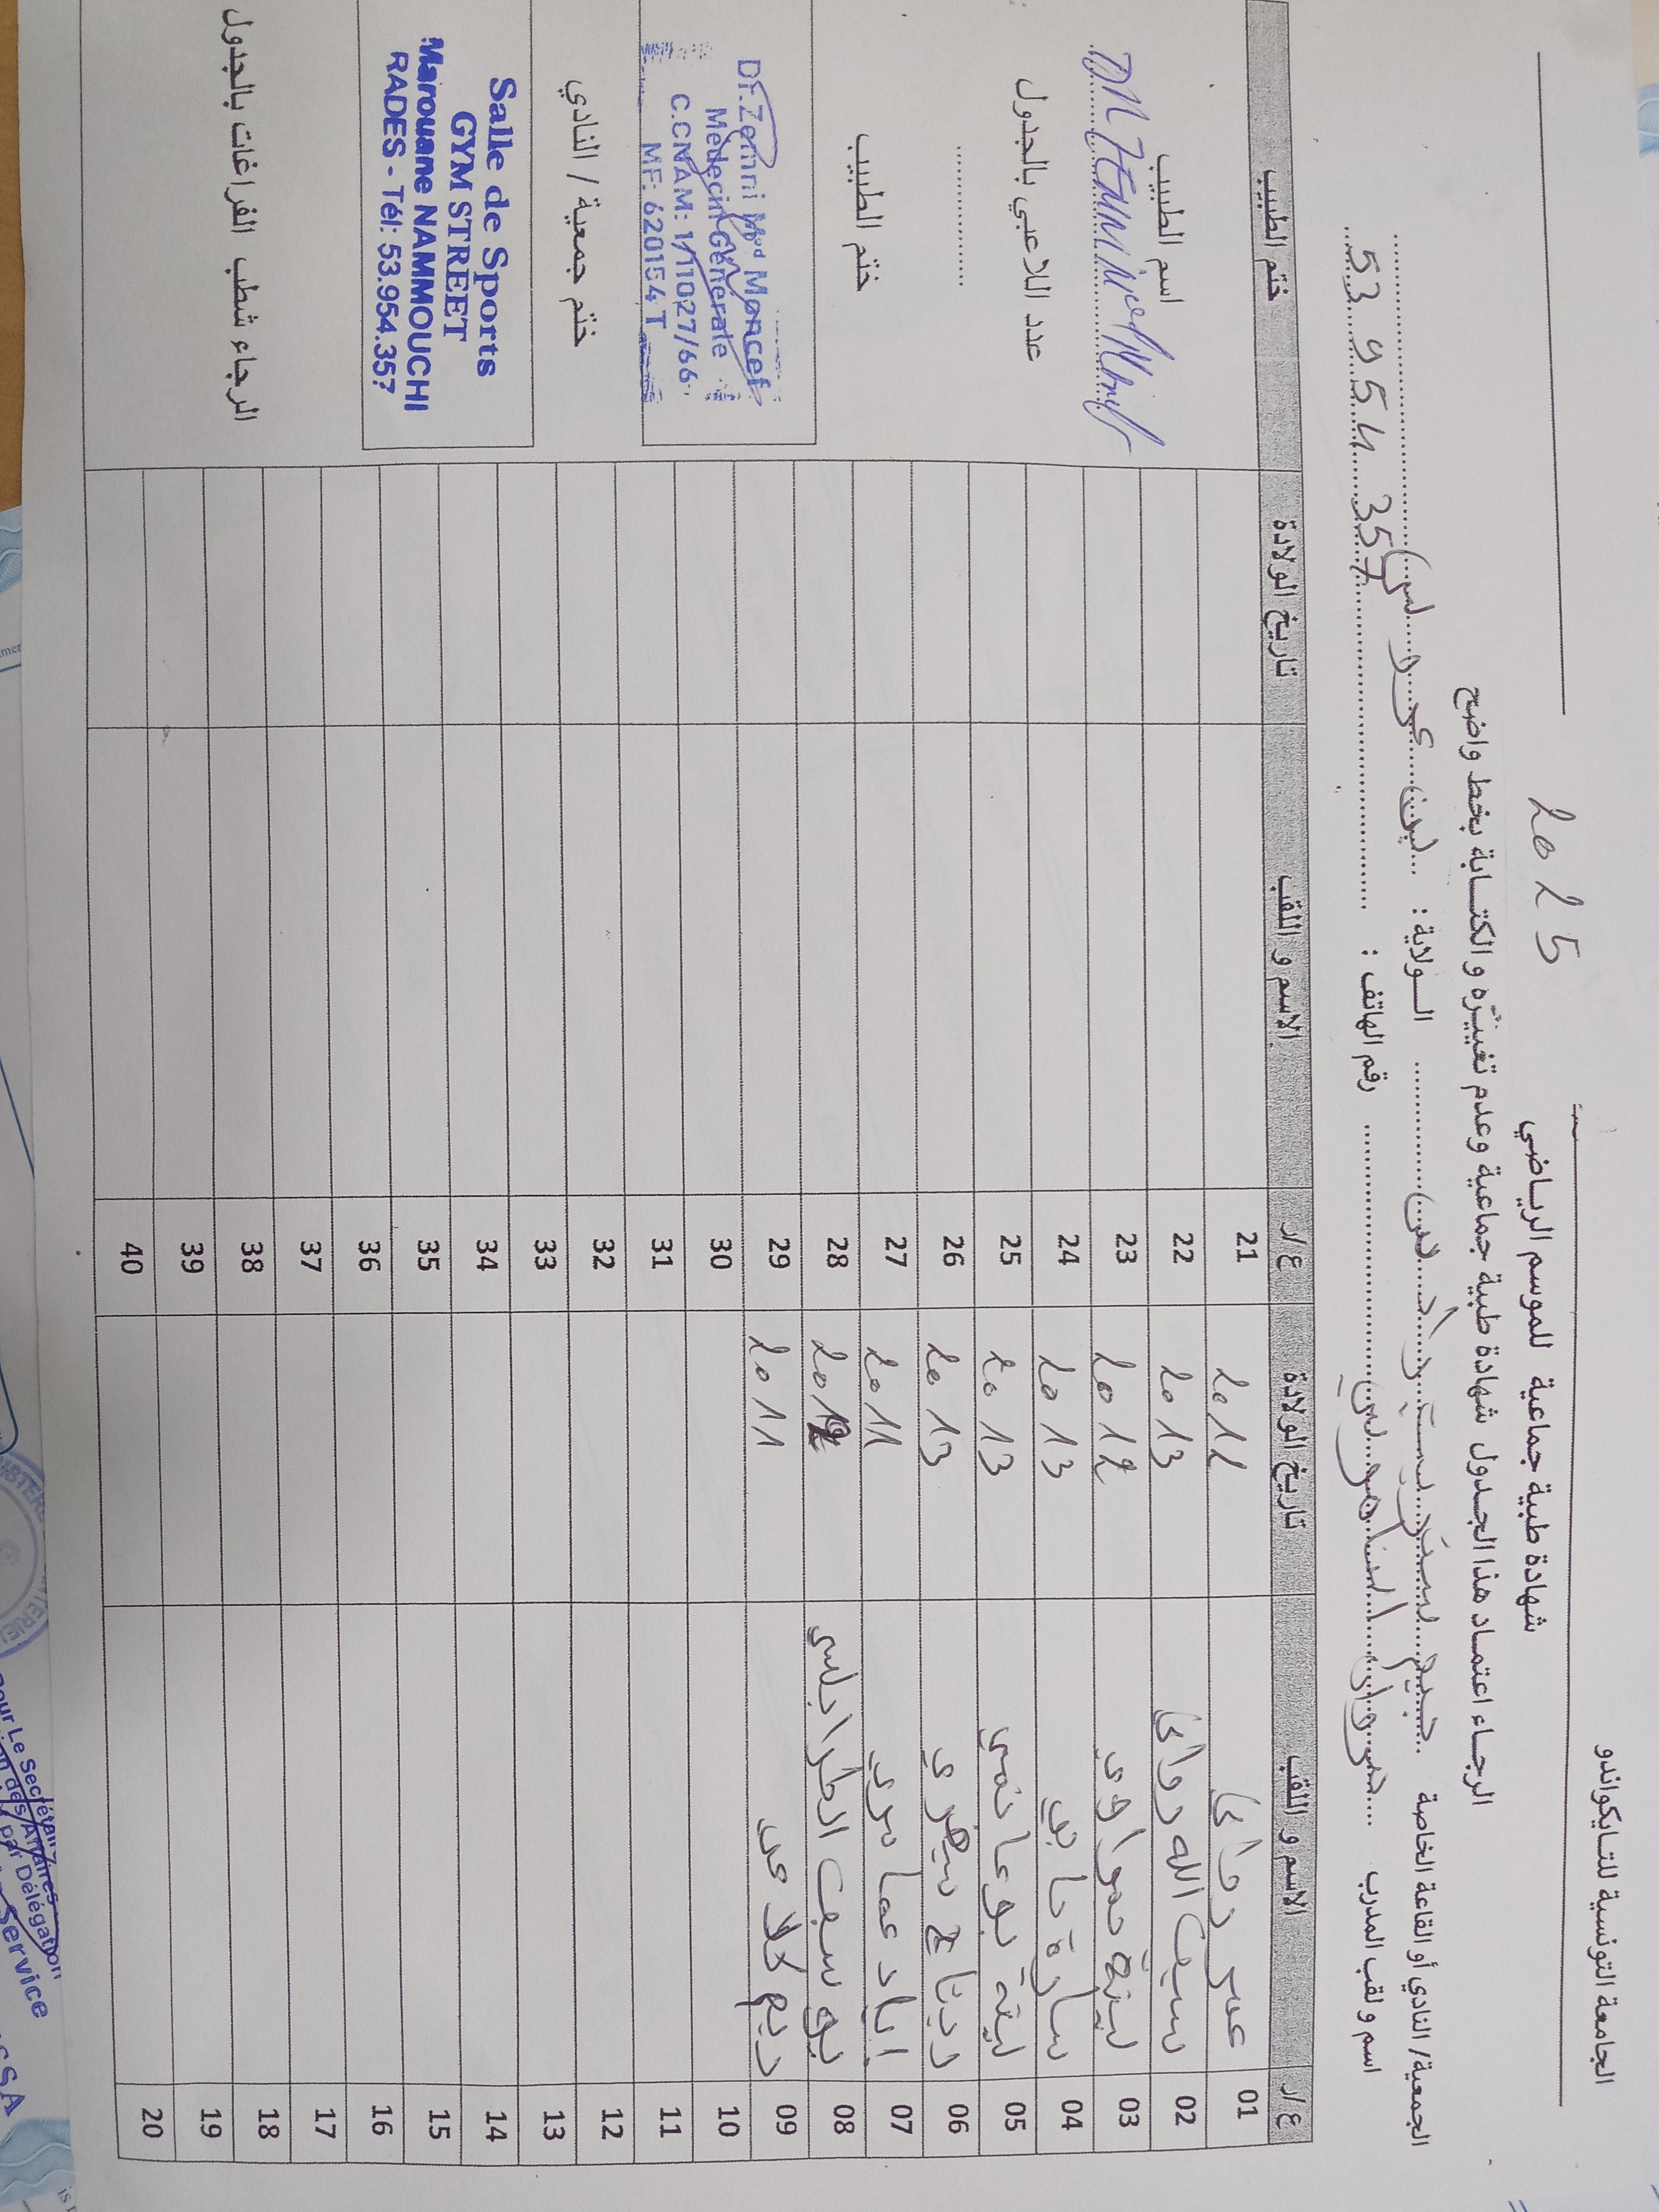 الجامعة التونسية للتايكواندو
شهادة طبية جماعية للموسم الرياضي 2025
الرجاء اعتماد هذا الجدول شهادة طبية جماعية وعدم تغييره و الكتابة بخط واضح
الجمعية/ النادي أو القاعة الخاصة جيم ستريت الولاية : بن عروس
اسم و لقب المدرب مروان النموشي رقم الهاتف : 53 954 357
ع/ر الاسم و اللقب تاريخ الولادة ع/ر الاسم و اللقب تاريخ الولادة ختم الطبيب
01 عمر 2012 21
02 سيف الله 2013 22
03 لينة 2012 23
04 سارة 2013 24
05 لينة بوغانمي 2013 25
06 2013 26
07 إياد عمامري 2011 27
08 يوسف الطرابلسي 2012 28
09 ريم 2011 29
10 30
11 31
12 32
13 33
14 34
15 35
16 36
17 37
18 38
19 39
20 40
اسم الطبيب
عدد اللاعبي بالجدول
ختم الطبيب
Dr. Zemni Md Moncef
Médecin Générale
C.CNAM: 1/11027/66
MF: 620154 T
ختم جمعية / النادي
Salle de Sports
GYM STREET
Marouane NAMMOUCHI
RADES - Tél: 53.954.357
الرجاء شطب الفراغات بالجدول
Pour Le Secrétaire
par Délégation
Service